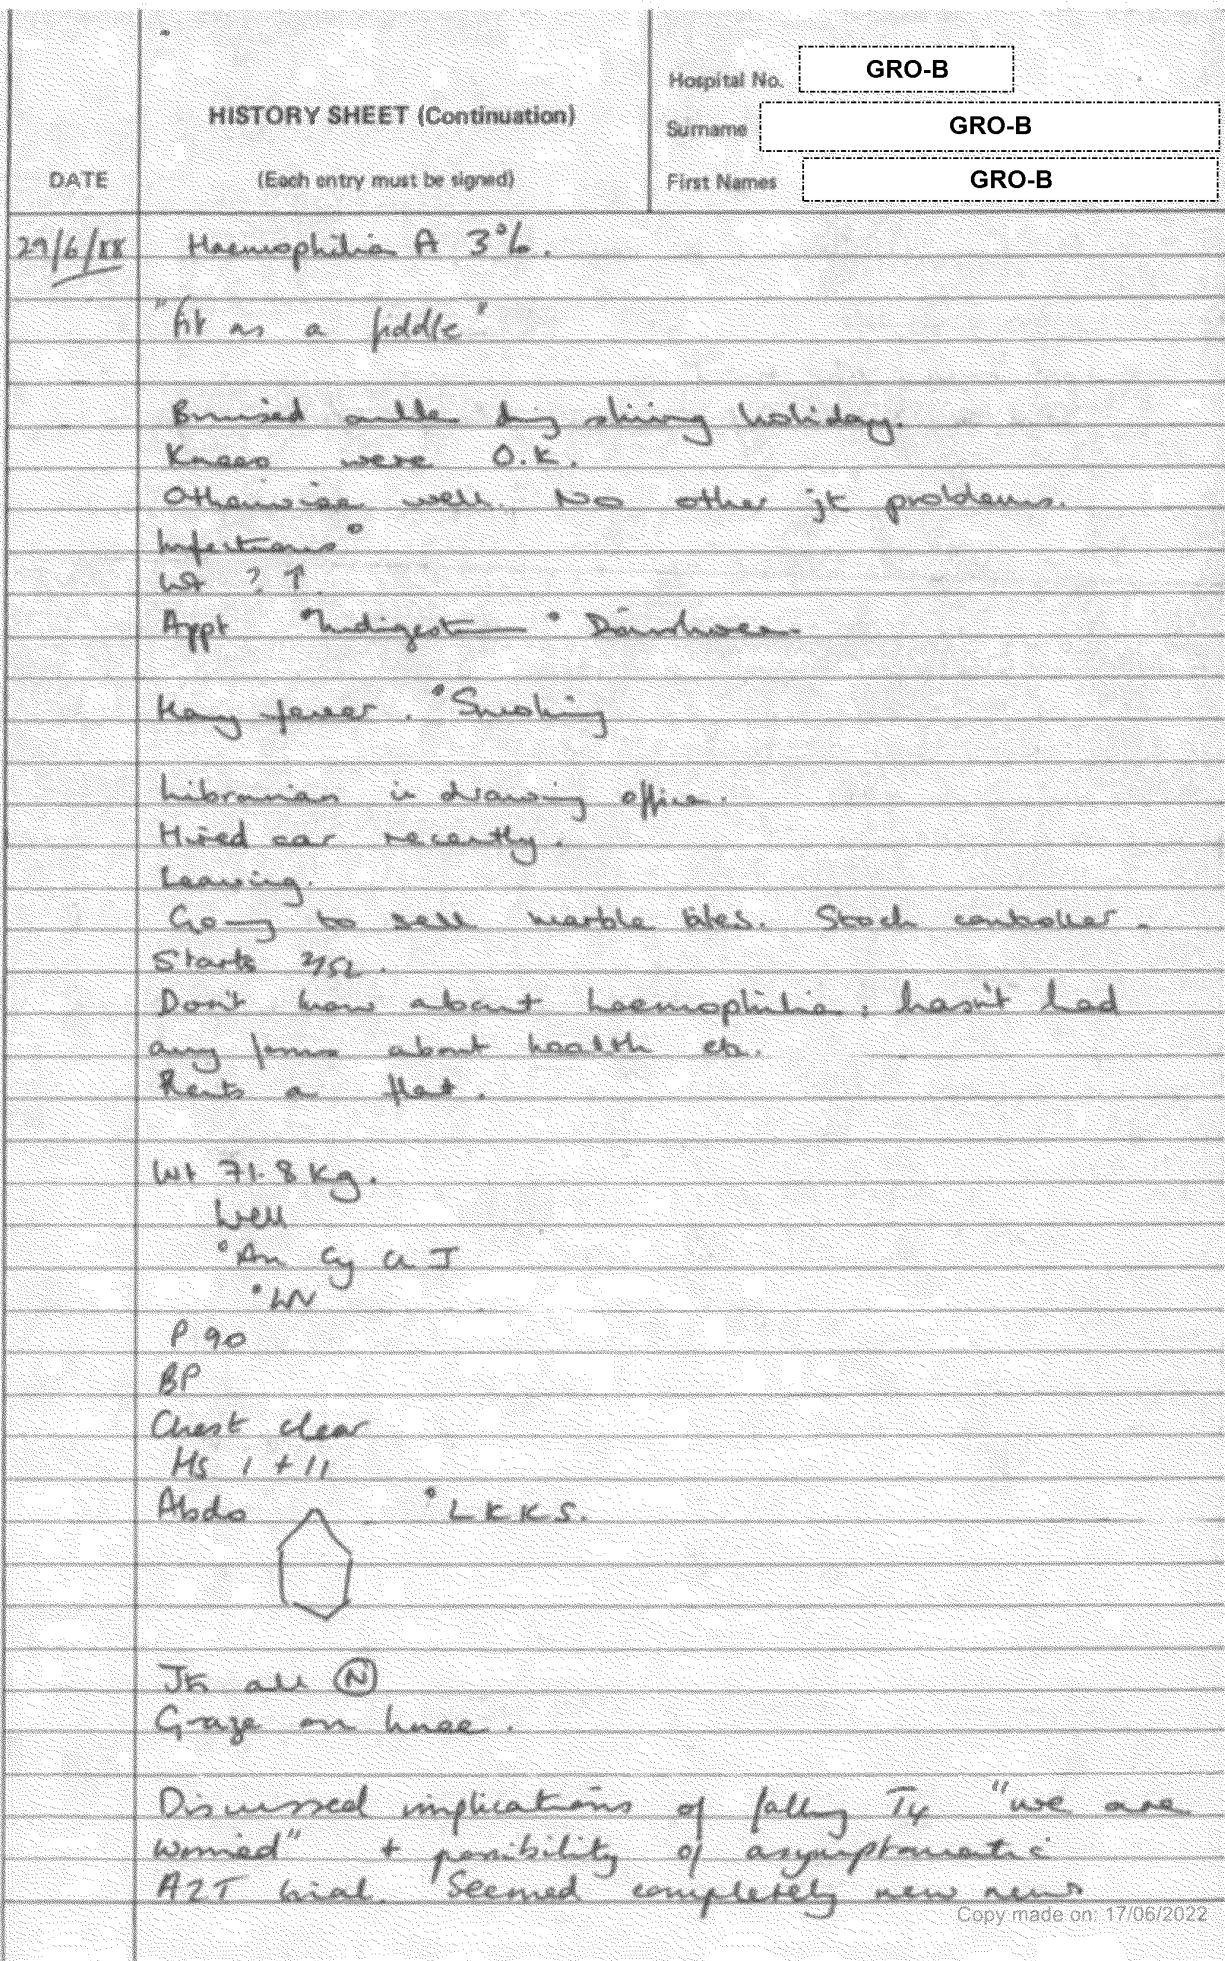 Hospital No. GRO-B
HISTORY SHEET (Continuation)
Surname GRO-B
DATE (Each entry must be signed) First Names GRO-B
29/6/88 Haemophilia A 3%.
"fit as a fiddle"
Bruised ankle dng skiing holiday.
Knees were O.K.
Otherwise well. No other jt problems.
Infections°
Wt ? ↑
Appt °Indigestion °Diarrhoea
Hay fever. °Smoking
Librarian in drawing office.
Hired car recently.
Leaving.
Going to sell marble tiles. Stock controller.
Starts 2/52.
Don't know about haemophilia; hasn't had
any forms about health etc.
Rents a flat.
Wt 71.8 Kg.
Well
°An Cy Cl J
°LN
P 90
BP
Chest clear
Hs 1 + 11
Abdo °LKKS.
Jts all N
Graze on knee.
Discussed implications of falling T4 "we are
worried" + possibility of asymptomatic
AZT trial. Seemed completely new news
Copy made on: 17/06/2022